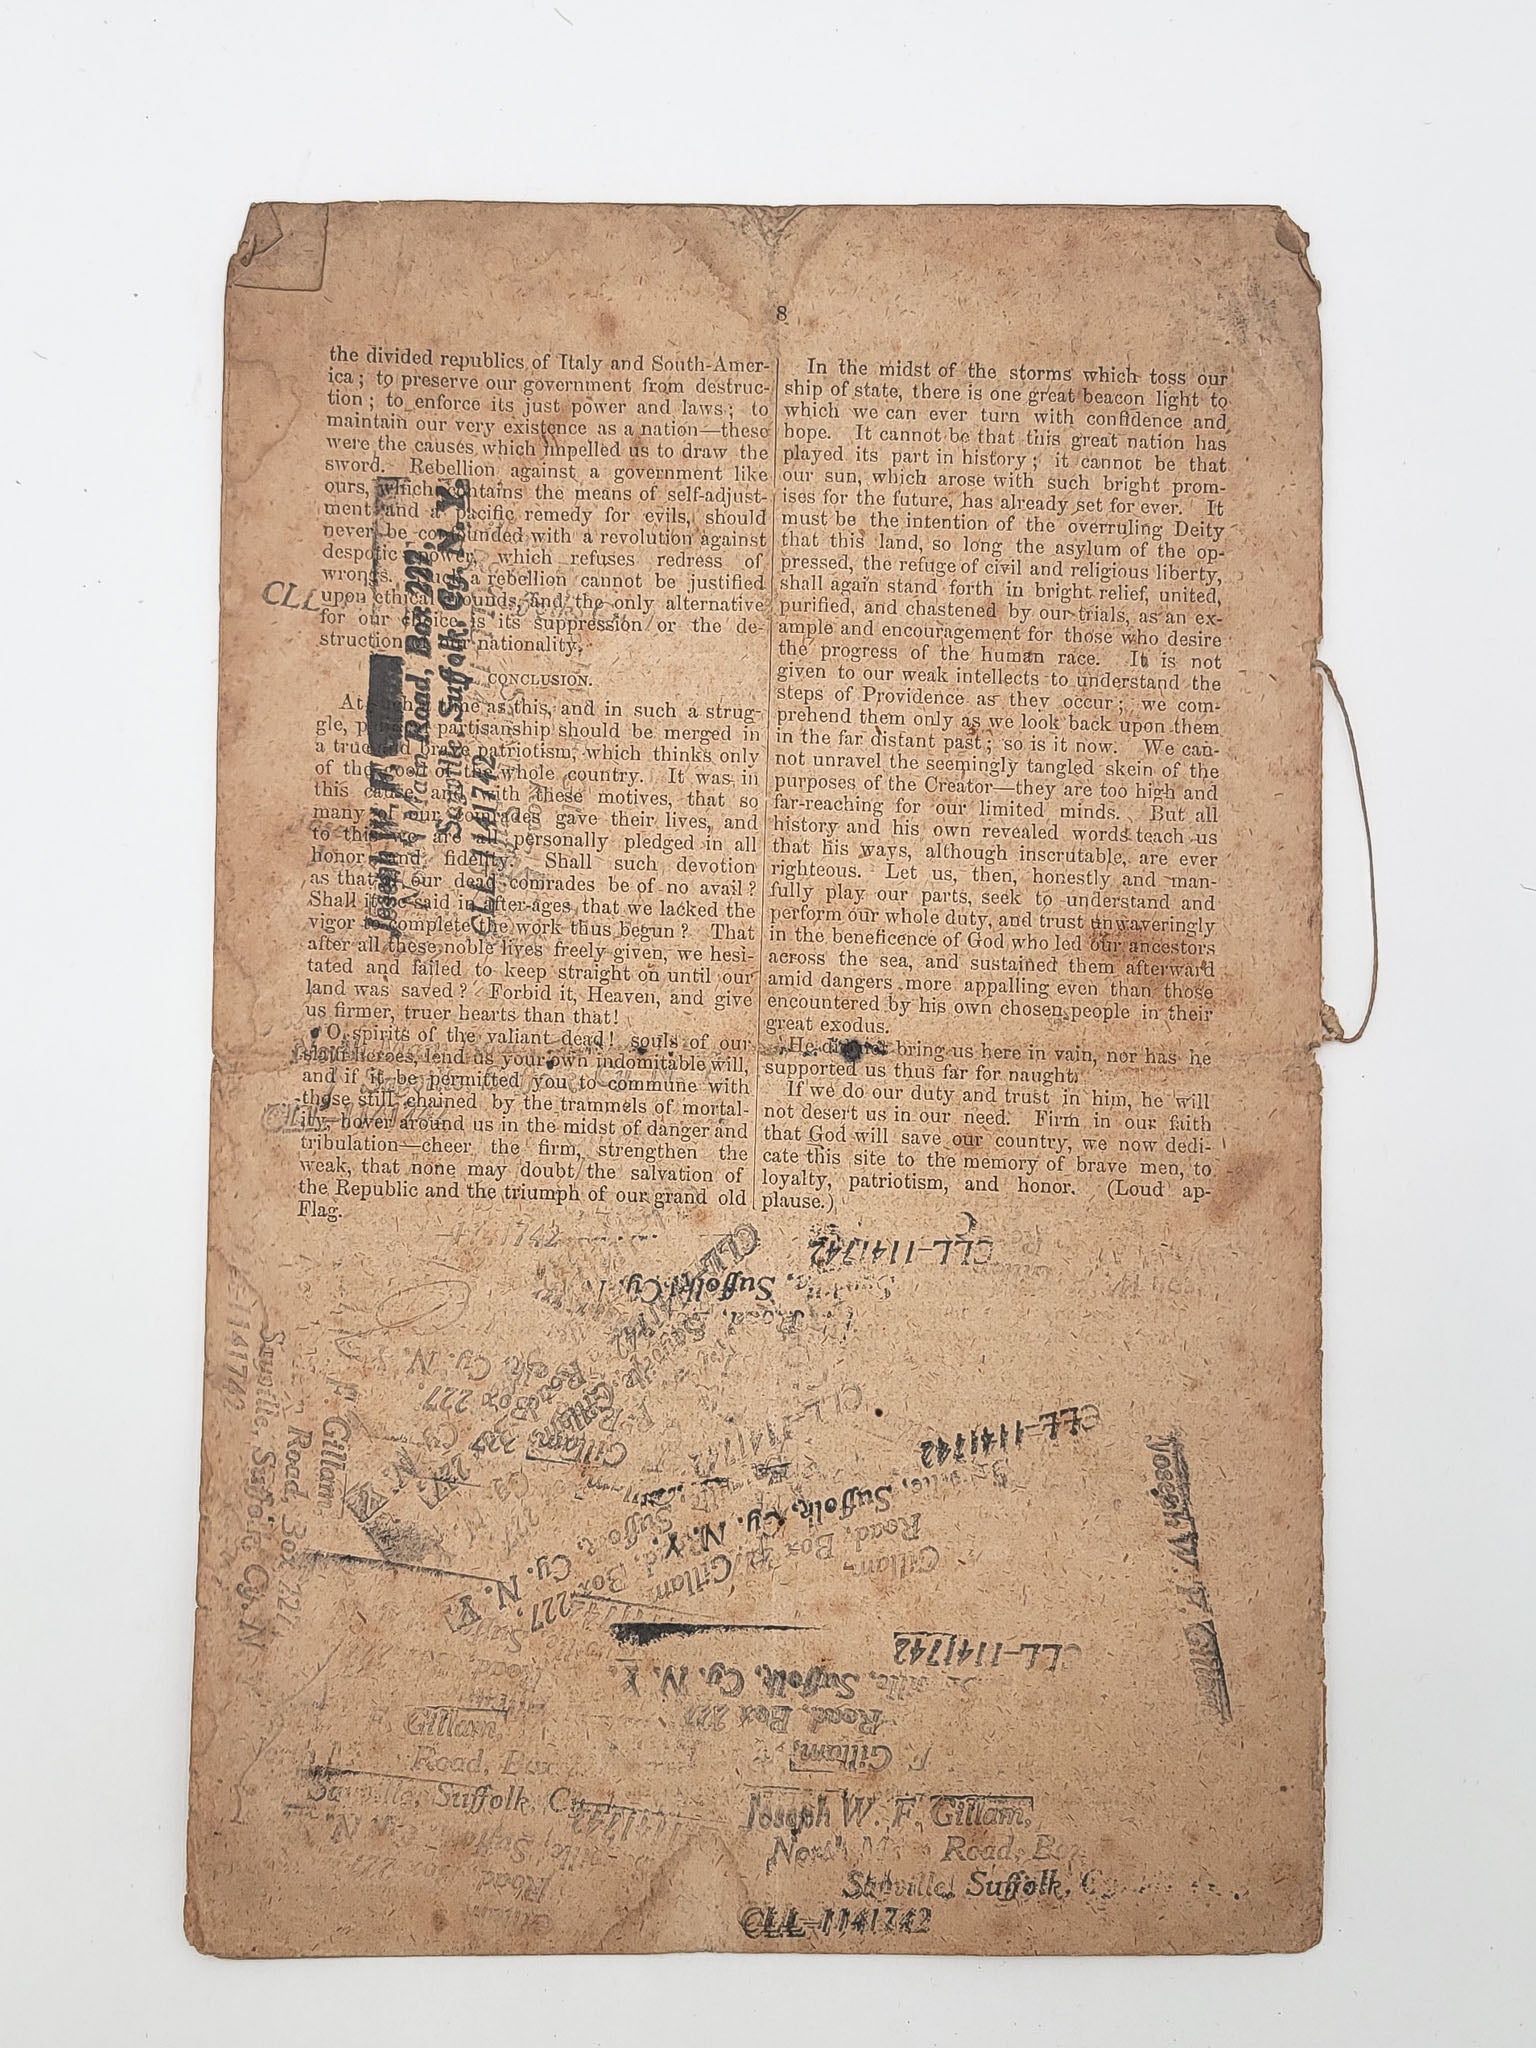 8
the divided republics of Italy and South-Amer-
ica; to preserve our government from destruc-
tion; to enforce its just power and laws; to
maintain our very existence as a nation—these
were the causes which impelled us to draw the
sword. Rebellion against a government like
ours, which contains the means of self-adjust-
ment and a pacific remedy for evils, should
never be confounded with a revolution against
despotic power, which refuses redress of
wrongs. Such a rebellion cannot be justified
upon ethical grounds, and the only alternative
for our choice is its suppression or the de-
struction of our nationality.
CONCLUSION.
At such a time as this, and in such a strug-
gle, partisanship should be merged in
a true and brave patriotism, which thinks only
of the good of the whole country. It was in
this cause, and with these motives, that so
many of our comrades gave their lives, and
to this we are all personally pledged in all
honor and fidelity. Shall such devotion
as that of our dead comrades be of no avail?
Shall it be said in after-ages that we lacked the
vigor to complete the work thus begun? That
after all these noble lives freely given, we hesi-
tated and failed to keep straight on until our
land was saved? Forbid it, Heaven, and give
us firmer, truer hearts than that!
O spirits of the valiant dead! souls of our
slain heroes, lend us your own indomitable will,
and if it be permitted you to commune with
those still chained by the trammels of mortal-
ity—hover around us in the midst of danger and
tribulation—cheer the firm, strengthen the
weak, that none may doubt the salvation of
the Republic and the triumph of our grand old
Flag.
In the midst of the storms which toss our
ship of state, there is one great beacon light to
which we can ever turn with confidence and
hope. It cannot be that this great nation has
played its part in history; it cannot be that
our sun, which arose with such bright prom-
ises for the future, has already set for ever. It
must be the intention of the overruling Deity
that this land, so long the asylum of the op-
pressed, the refuge of civil and religious liberty,
shall again stand forth in bright relief, united,
purified, and chastened by our trials, as an ex-
ample and encouragement for those who desire
the progress of the human race. It is not
given to our weak intellects to understand the
steps of Providence as they occur; we com-
prehend them only as we look back upon them
in the far distant past; so is it now. We can-
not unravel the seemingly tangled skein of the
purposes of the Creator—they are too high and
far-reaching for our limited minds. But all
history and his own revealed words teach us
that his ways, although inscrutable, are ever
righteous. Let us, then, honestly and man-
fully play our parts, seek to understand and
perform our whole duty, and trust unwaveringly
in the beneficence of God who led our ancestors
across the sea, and sustained them afterward
amid dangers more appalling even than those
encountered by his own chosen people in their
great exodus.
He did not bring us here in vain, nor has he
supported us thus far for naught.
If we do our duty and trust in him, he will
not desert us in our need. Firm in our faith
that God will save our country, we now dedi-
cate this site to the memory of brave men, to
loyalty, patriotism, and honor. (Loud ap-
plause.)
CLL
Joseph W. F.
Road, Box 227,
Sayville, Suffolk, Cy. N. Y.
CLL-1141742
CLL-1141742
CLL-1141742
Suffolk, Cy.
CLL-1141742
Suffolk, Cy. N. Y.
Road, Box
Gillam,
Joseph W. F. Gillam,
Gillam,
Road, Box 227
Sayville, Suffolk, Cy. N
1141742
CLL-1141742
Suffolk, Cy. N. Y.
Road, Box 227
F. Gillam,
F. Gillam,
Road, Box
Sayville, Suffolk, Cy.
1141742
Joseph W. F. Gillam,
North Road, Box
Sayville, Suffolk, Cy.
CLL-1141742